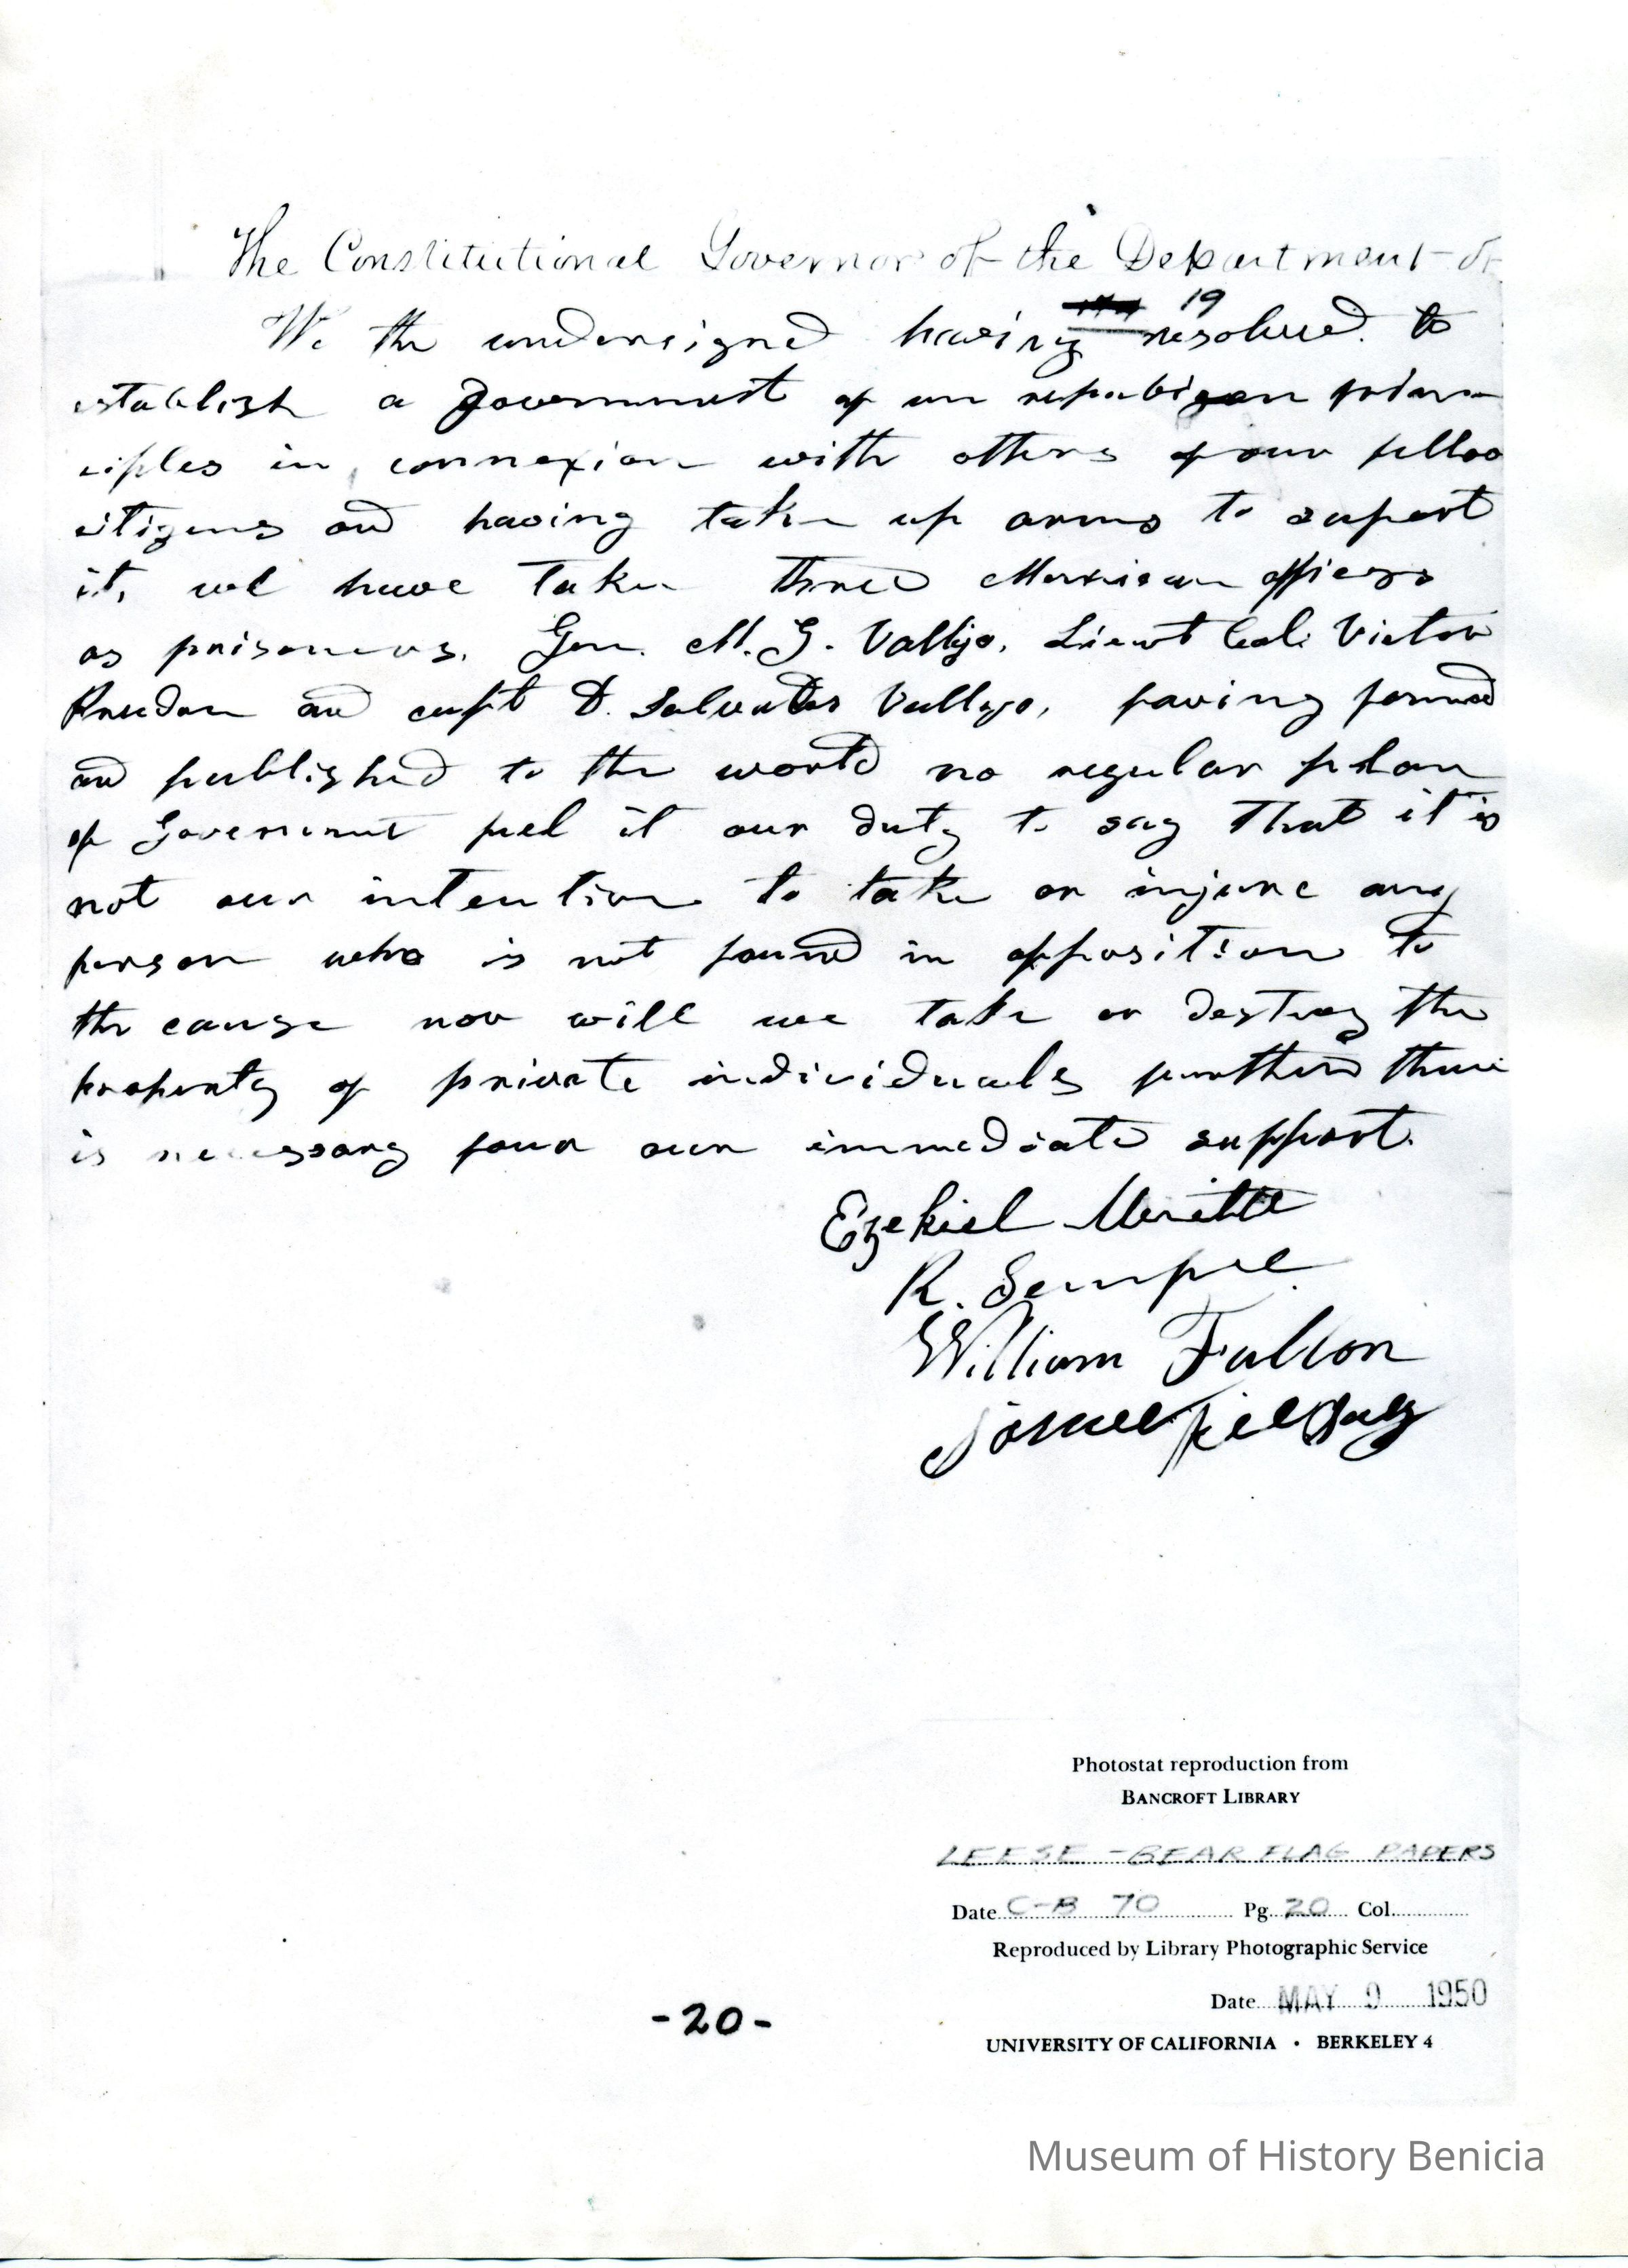 The Constitutional Governor of the Department of
19
We the undersigned having resolved to
establish a government of un republican prin
ciples in connexion with others of our fellow
citizens and having taken up arms to suport
it, we have taken three Mexican officers
as prisoners. Gen. M. G. Vallejo, Lieut Col. Victor
Prudon and capt D. Salvador Vallejo, having formed
and published to the world no regular plan
of Government feel it our duty to say That it is
not our intention to take or injure any
person who is not found in opposition to
the cause nor will we take or destroy the
property of private individuals further than
is necessary four our immediate support.
Ezekiel Meritte
R. Semple
William Fallon
Samuel Kelsey
Photostat reproduction from
BANCROFT LIBRARY
LEESE - BEAR FLAG PAPERS
Date C-B 70 Pg. 20 Col.
Reproduced by Library Photographic Service
Date MAY 9 1950
UNIVERSITY OF CALIFORNIA · BERKELEY 4
-20-
Museum of History Benicia